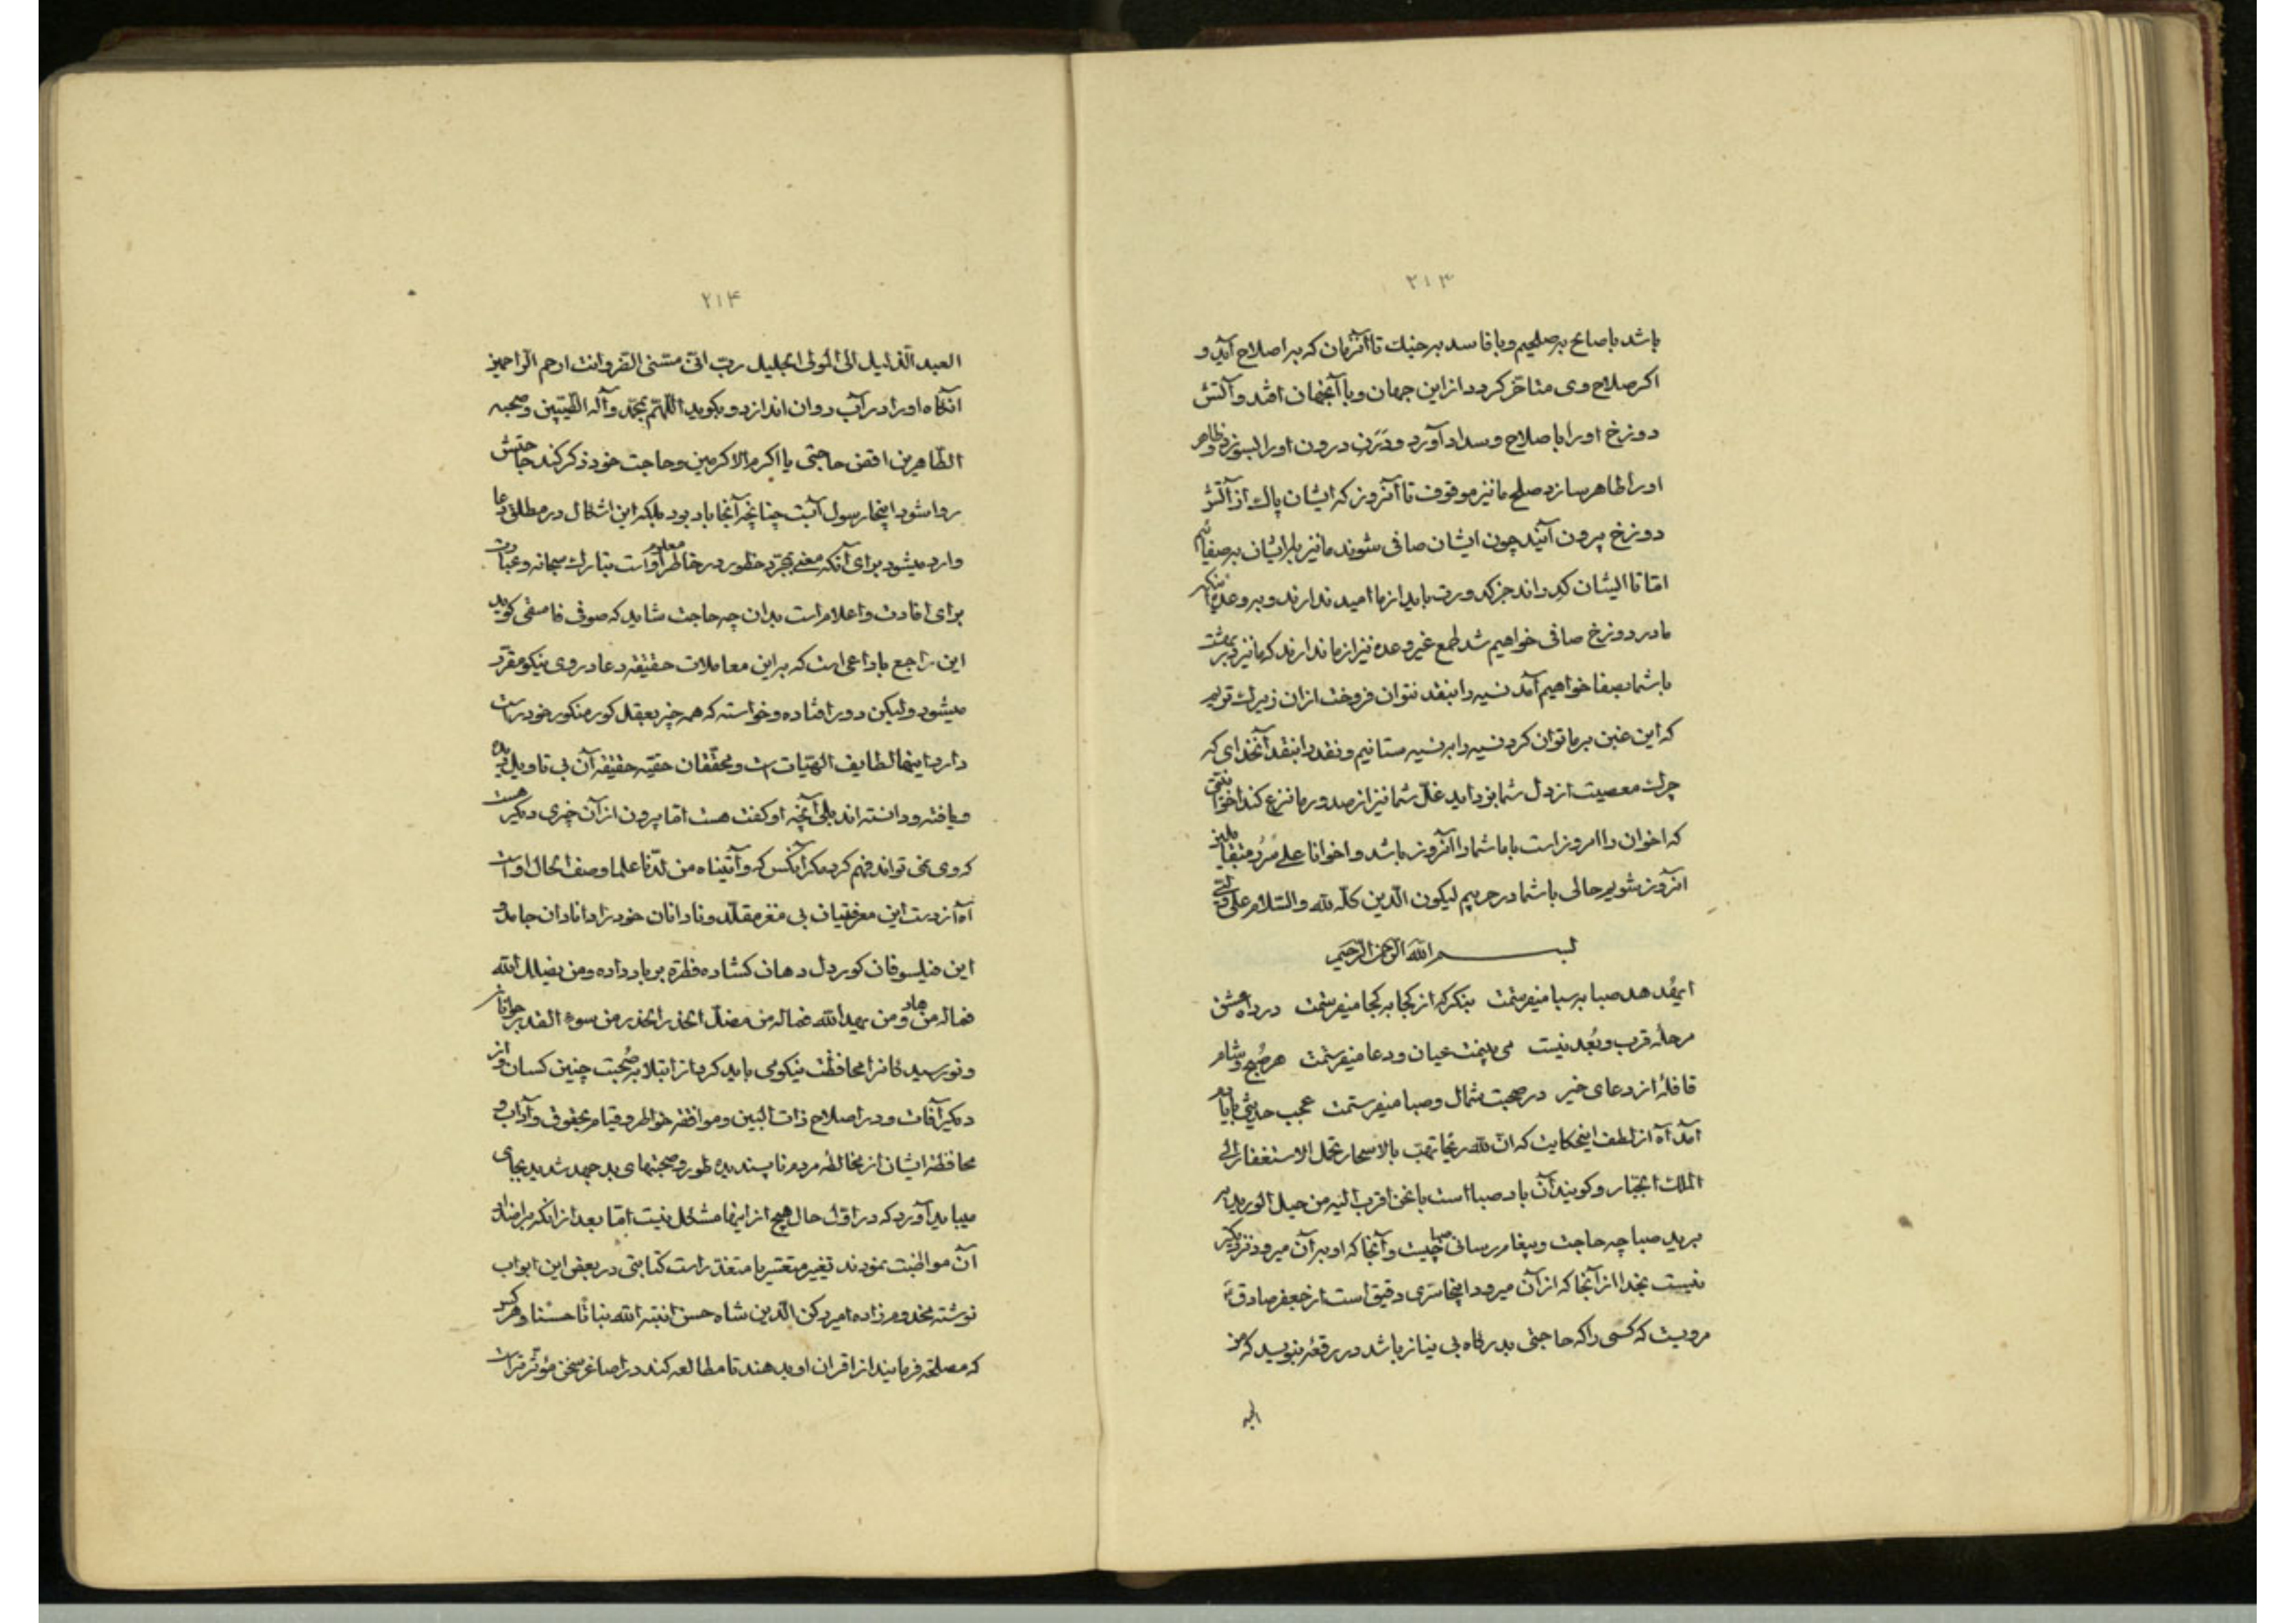 ۲۱۳
باشد با صالح بر صلحیم و با فاسد بر جنک تا آنزمان که بر اصلاح آید و
اکر صلاح وی متاخر کردد از این جهان و با آنجهان افتد و آتش
دوزخ او را با صلاح و سداد آورد و درن درون او را بسوزد و ظاهر
او را طاهر سازد صلح ما نیز موقوف تا آنروز که ایشان پاک از آتش
دوزخ برون آیند چون ایشان صافی شوند ما نیز با ایشان بر صفائیم
اما تا ایشان کدراند جز کدورت باید از ما امید ندارند و بر وعده آنکه
ما در دوزخ صافی خواهیم شد طمع غیر وعده نیز از ما ندارند که ما نیز در بهشت
با شما بصفا خواهیم آمد نسیه را بنقد نتوان فروخت از آن زیرک تریم
که این غبن بر ما توان کرد نسیه را به نسیه ستانیم و نقد را بنقد آنخدای که
چرک معصیت از دل شما بزداید غل شما نیز از صدور ما نزع کند اخوا
که اخوان را امروز است با ما شما را آنروز باشد و اخوانا علی سرر متقابلین
آنروز شویم حالی با شما در حربیم لیکون الدین کله لله والسلام علی
بسم الله الرحمن الرحیم
ای هدهد صبا به سبا میفرستمت بنکر که از کجا به کجا میفرستمت در راه عشق
مرحله قرب و بعد نیست می بینمت عیان و دعا میفرستمت هر صبح و شام
قافلهٔ از دعای خیر در صحبت شمال و صبا میفرستمت عجب حدیثی
آمد آه از لطف اینحکایت که ان لله ریحا تهب بالاسحار تحمل الاستغفار الی
الملک الجبار و کویند آن باد صبا است با نحن اقرب الیه من حبل الورید
برید صبا چه حاجت و پیغام رسانی صبا چیست و آنجا که او بر آن میرود نزدیکتر
نیست بخدا از آنجا که از آن میرود اینجا سری دقیق است از جعفر صادق ع
مرویست که کسی را که حاجتی بدرکاه بی نیاز باشد در رقعهٔ بنویسد که من
۲۱۴
العبد الذلیل الی المولی الجلیل رب انی مسنی الضر و انت ارحم الراحمین
آنکاه او را در آب روان اندازد و بکوید اللهم بمحمد و آله الطیبین و صحبه
الطاهرین اقض حاجتی یا اکرم الاکرمین و حاجت خود ذکر کند حاجتش
روا شود اینجا رسول آبست چنانچه آنجا باد بود بلکه این اشکال در مطلق دعا
وارد میشود برای آنکه معنی بمجرد خطور در خاطر معلوم او است تبارک سبحانه و عبارت
برای افادت و اعلام است بدان چه حاجت شاید که صوفی فاسفی کوید
این راجع با داعی است که بر این معاملات حقیقه دعا در وی نیکو مقرر
میشود ولیکن دور افتاده و خواسته که همه چیز بعقل کور منکور خود راست
دارد اینها لطایف الهیات است و محققان حقیه حقیقه آن بی تاویل دیده
و یافته و دانسته اند بلی آنچه او کفت هست اما برون از آن چیزی دیکر هست
که وی نمی تواند فهم کرد مکر آنکس که و آتیناه من لدنا علما وصف الحال اوست
آه از دست این معرفتیان بی مغز مقلد و نادانان خود را دانادان جاهل و
این فیلسوفان کور دل دهان کشاده فطره بر باد داده و من یضلل الله
فما له من هاد و من یهد الله فما له من مضل الحذر الحذر من سوء القدر جوانان
و نورسیدکانرا محافظت نیکو می باید کرد از ابتلا بصحبت چنین کسان و از
دیکر آفات و در اصلاح ذات البین و موافقه خواطر و قیام بحقوق و آداب و
محافظه ایشان از مخالطه مردم ناپسندیده طور و صحبتهای بد جهد شدید بجای
میباید آورد که در اول حال هیچ از اینها مشکل نیست اما بعد از آنکه بر اضداد
آن مواظبت نمودند تغییر متعسر یا متعذر است کتابتی در بعضی این ابواب
نوشته مخدوم زاده امیر رکن الدین شاه حسن انبته الله نباتا حسنا و هر کس
که مصلحة فرمایند از اقران او بدهند تا مطالعه کند در اصاغر سخن مؤثرتر است